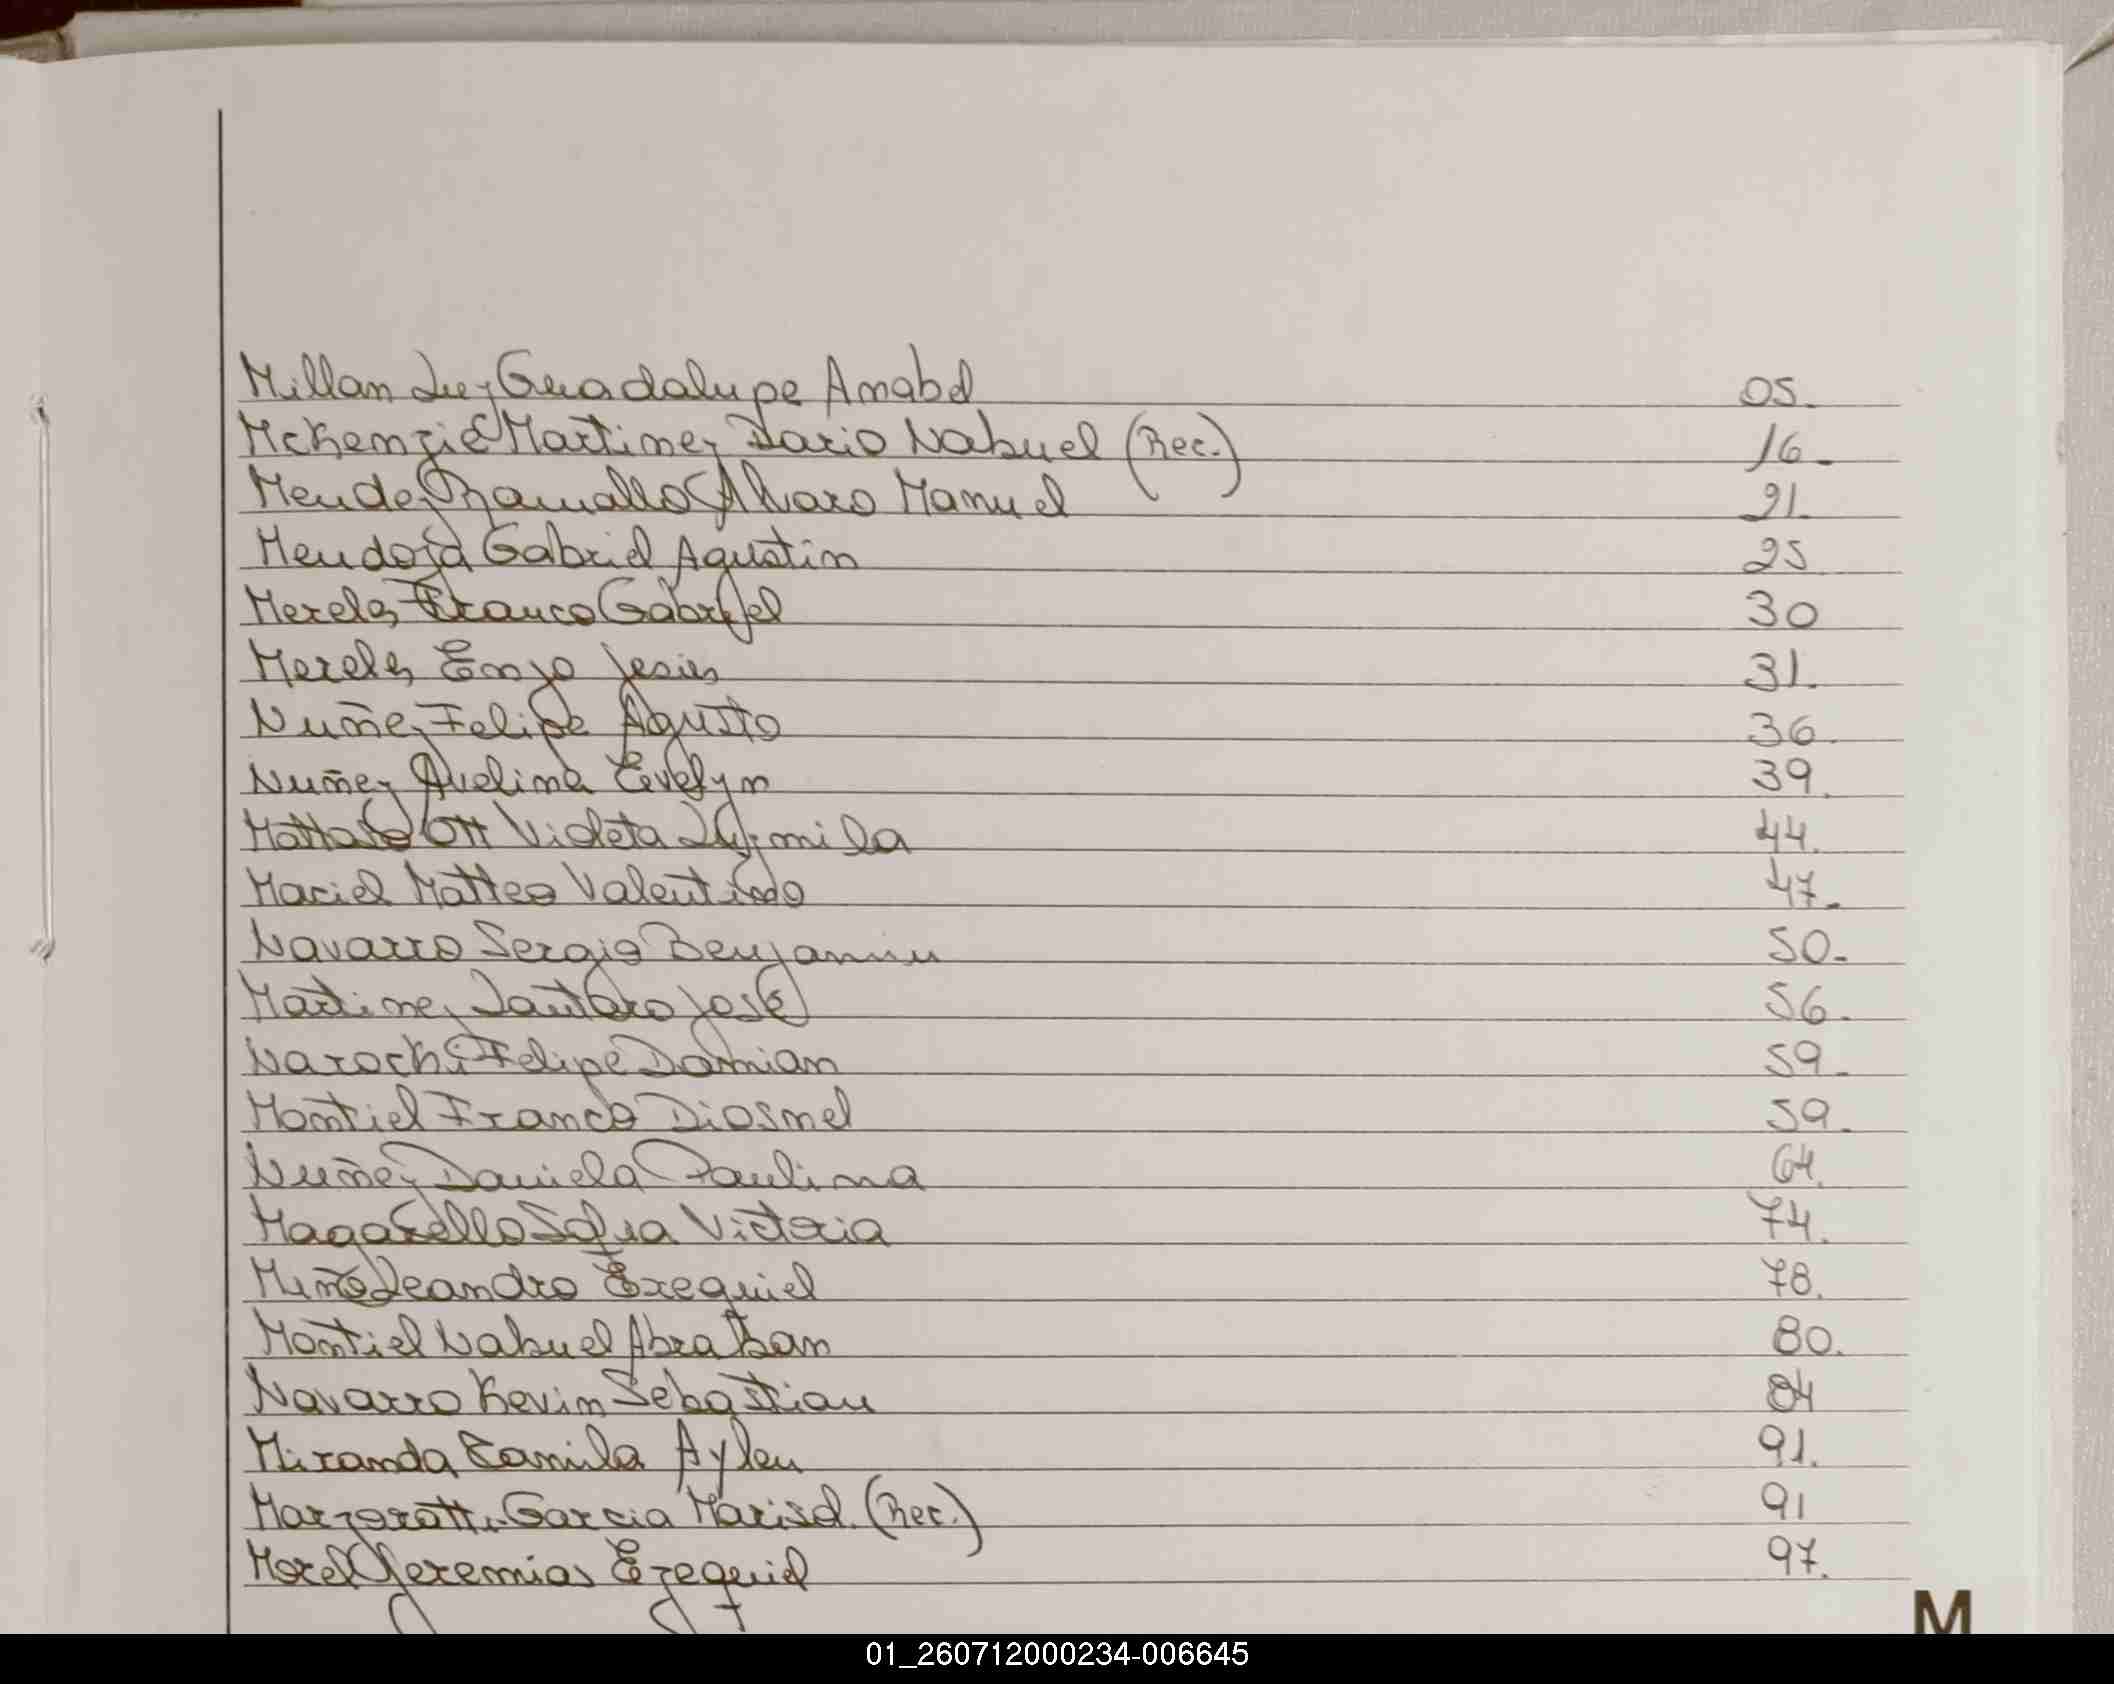 Millan Luz Guadalupe Anabel 05.
Mckenzie Martinez Dario Nahuel (Rec.) 16.
Mendez Ramallo Alvaro Manuel 21.
Mendoza Gabriel Agustin 25
Merelez Franco Gabriel 30
Merelez Enzo Jesús 31.
Nuñez Felipe Agusto 36.
Nuñez Avelina Evelyn 39.
Ott Violeta Luzmila 44.
Maciel Matteo Valentino 47.
Navarro Sergio Benjamin 50.
Martinez Lautaro José 56.
Narochi Felipe Damian 59.
Montiel Franco Diosnel 59.
Nuñez Daniela Paulina 64.
Magarello Sofia Victoria 74.
Miño Leandro Exequiel 78.
Montiel Nahuel Abrahan 80.
Navarro Kevin Sebastian 84
Miranda Camila Aylen 91.
Marzoratti Garcia Marisel. (Rec.) 91
Morel Jeremias Ezequiel 97.
M
01_260712000234-006645